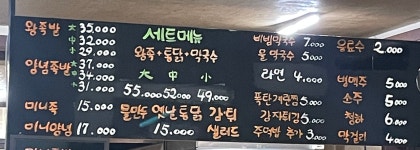 왕족발 大 35.000
中 32.000
小 29.000
양념족발 大 37.000
中 34.000
小 31.000
미니족 15.000
미니양념 17.000
세트메뉴
왕족+통닭+막국수
大 中 小
55.000 52000 49.000
물만두 옛날통닭 감튀
15.000 샐러드
비빔막국수 7.000
물막국수 5000
라면 4.000
폭탄계란찜 5000
감자튀김 5000
주먹밥 추가 3.000
음료수 2.000
병맥주 5000
소주 5000
청하 6.000
막걸리 4.000